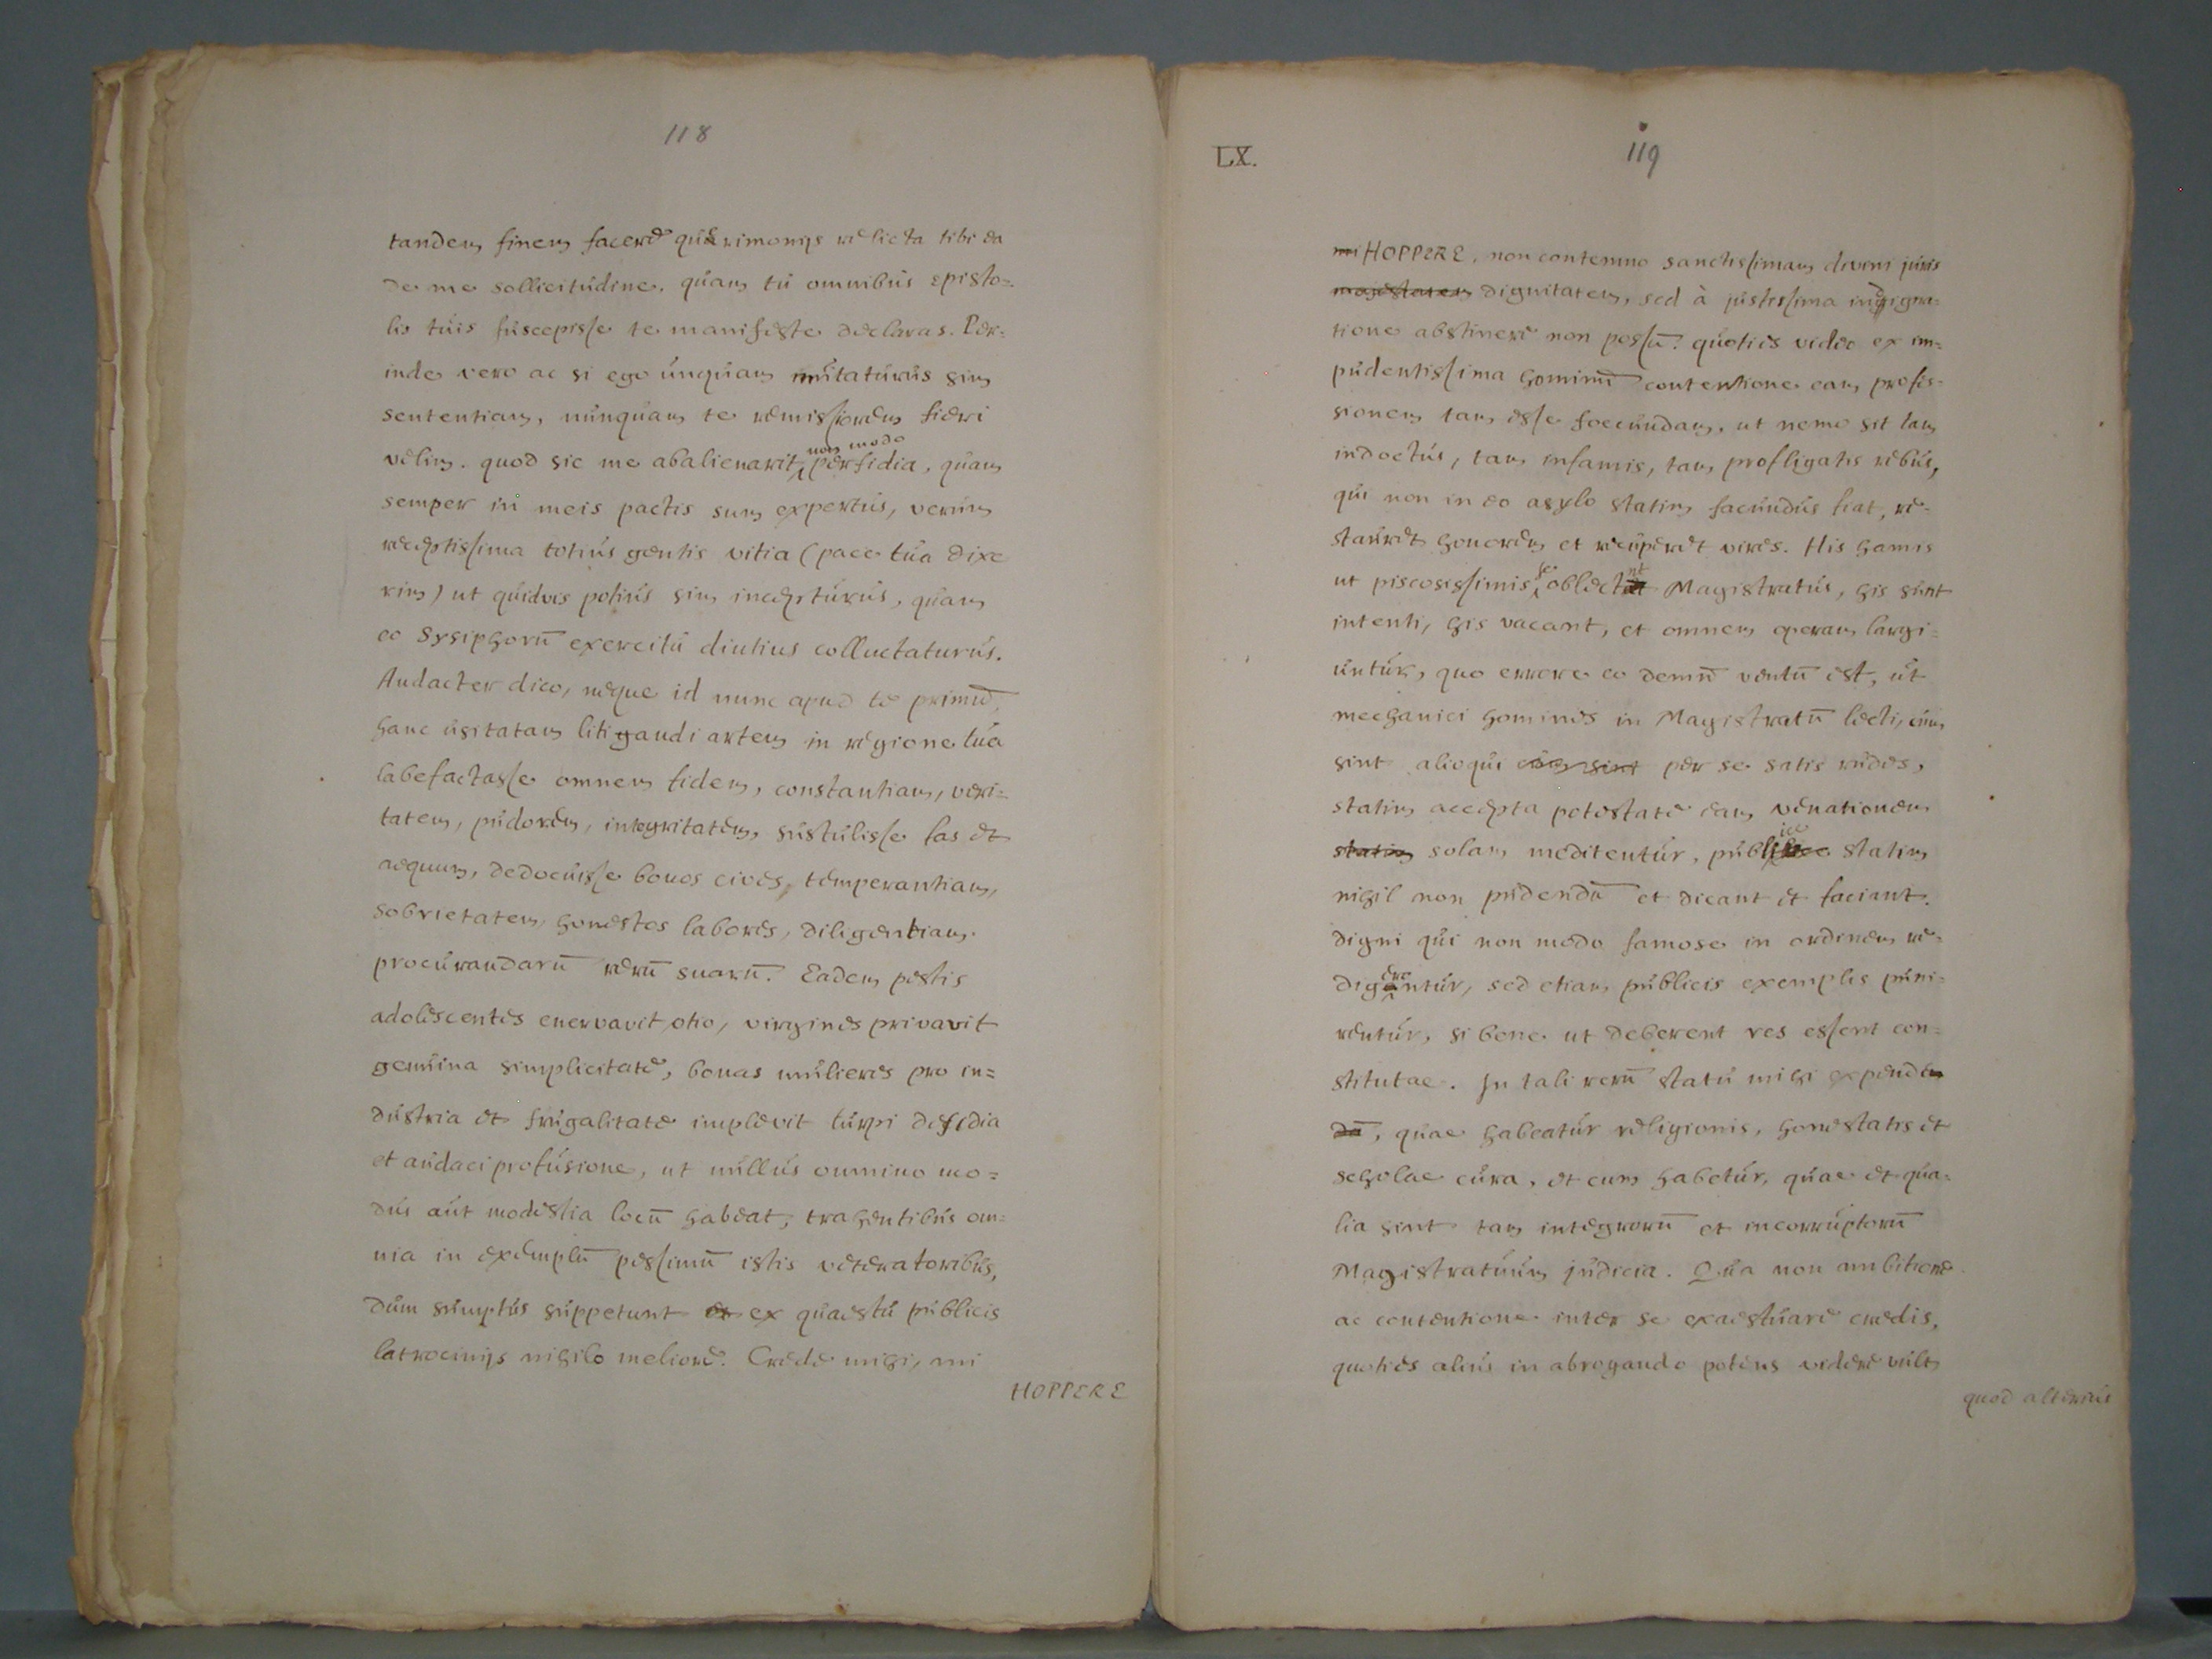 118
tandem finem facere querimonijs relicta tibi ea
de me sollicitudine, quam tu omnibus Episto=
lis tuis suscepisse te manifeste declaras. Per-
inde vero ac si ego unquam mutaturus sim
sententiam, nunquam te remissiorem fieri
velim. quod sic me abalienarit non modo perfidia, quam
semper in meis pactis sum expertus, verum
receptissima totius gentis vitia (pace tua dixe
rim) ut quidvis potius sim incepturus, quam
eo Sysiphorū exercitu diutius colluctaturus.
Audacter dico, neque id nunc apud te primū,
hanc usitatam litigandi artem in regione tua
labefactasse omnem fidem, constantiam, veri=
tatem, pudorem, integritatem, sustulisse fas et
aequum, dedocuisse bonos cives, temperantiam,
sobrietatem, honestos labores, diligentiam
procurandarū rerū suarū. Eadem pestis
adolescentes enervavit otio, virgines privavit
genuina simplicitate, bonas mulieres pro in=
dustria et frugalitate implevit turpi desidia
et audaci profusione, ut nullus omnino mo=
dus aut modestia locū habeat, trahentibus om=
nia in exemplū pessimū istis veteratoribus,
dum sumptus suppetunt et ex quaestu publicis
latrocinijs nihilo meliore. Crede mihi, mi
HOPPERE
LX.
119
mi HOPPERE, non contemno sanctissimam divini juris
majestatem dignitatem, sed à justissima indigna-
tione abstinere non possū: quoties video ex im=
pudentissima hominū contentione eam profes-
sionem tam esse foecundam, ut nemo sit tam
indoctus, tam infamis, tam profligatis rebus,
qui non in eo asylo statim facundus fiat, re-
stauret honorem et recuperet vires. His hamis
ut piscosissimis se oblectant Magistratus, his sunt
intenti, his vacant, et omnem operam largi=
untur, quo errore eo demū ventū est, ut
mechanici homines in Magistratū lecti, cum
sint alioqui cum sint per se satis rudes,
statim accepta potestate eam venationem
statim solam meditentur, publice statim
nihil non pudendū et dicant et faciant.
digni qui non modo famose in ordinem re-
digerentur, sed etiam publicis exemplis puni=
rentur, si bene ut deberent res essent con=
stitutae. In tali rerū statu mihi expende
dū, quae habeatur religionis, honestatis et
scholae cura, et cum habetur, quae et qua-
lia sint tam integrorū et incorruptorū
Magistratuum judicia. Qua non ambitione
ac contentione inter se exaestuare credis,
quoties alius in abrogando potens videre vult,
quod alterius